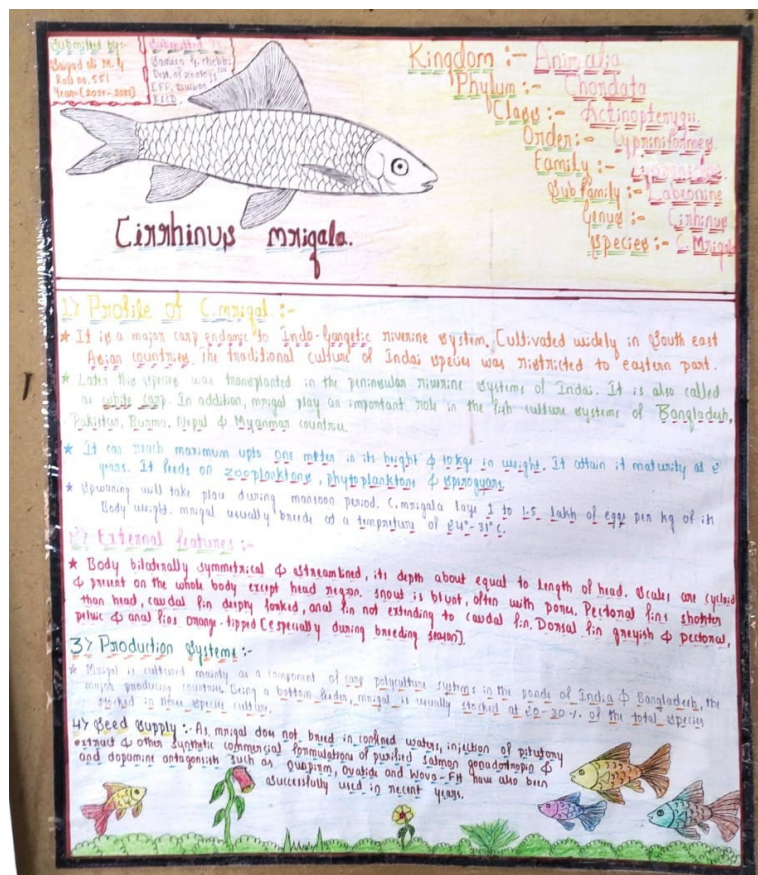 Submitted by:-
Saiyad ali M. Y
Roll no. 551
Year-[2021-2022]
Submitted To.
Dept. of zoology
Kingdom :- Animalia
Phylum :- Chordata
Class :- Actinopterygii.
Order:- Cypriniformes.
Family :-
Sub family :- Labeonine
Genus :- Cirhinus
Species:- C. Mrigala
Cirrhinus mrigala.
1) Profile of C.mrigal :-
★ It is a major carp endamic to Indo-Gangetic riverine system. Cultivated widely in South east
Asian countries. The traditional culture of Indai species was ristricted to eastern part.
★ Later this species was transplanted in the peninsular riverine systems of Indai. It is also called
as white carp. In addition, mrigal play an important role in the fish culture systems of Bangladesh,
Pakistan, Burma, Nepal & Myanmar countries.
★ It can reach maximum upto one meter in its height & 10kgs in weight. It attain it maturity at 2
years. It feeds on zooplanktons, phytoplanktons & spirogyars.
★ Spwaning will take place during mansoon period. C.mrigala lays 1 to 1.5 lakh of eggs per kg of its
Body weight. mrigal usually breeds at a tempreture of 24°-31°C.
2) External features :-
★ Body bilaterally symmetrical & streamlined, its depth about equal to length of head. Scales are cycloid
& present on the whole body except head region. snout is blunt, often with pores. Pectoral fins shorter
than head, caudal fin deeply forked, anal fin not extending to caudal fin. Dorsal fin greyish & pectoral,
pelvic & anal fins orange-tipped [especially during breeding season].
3) Production Systems :-
★ Mrigal is cultured mainly as a component of carp polyculture systems in the ponds of India & Bangladesh, the
major producing countries. Being a bottom feeder, mrigal is usually stocked at 20-30% of the total species
stocked in three species culture.
4) Seed Supply :- As mrigal does not breed in confined waters, injection of pitutory
extract & other synthetic commercial formulations of purified salmon gonadotropin &
and dopamine antagonists such as Ovaprim, Ovatide and Wova-FH have also been
successfully used in recent years.